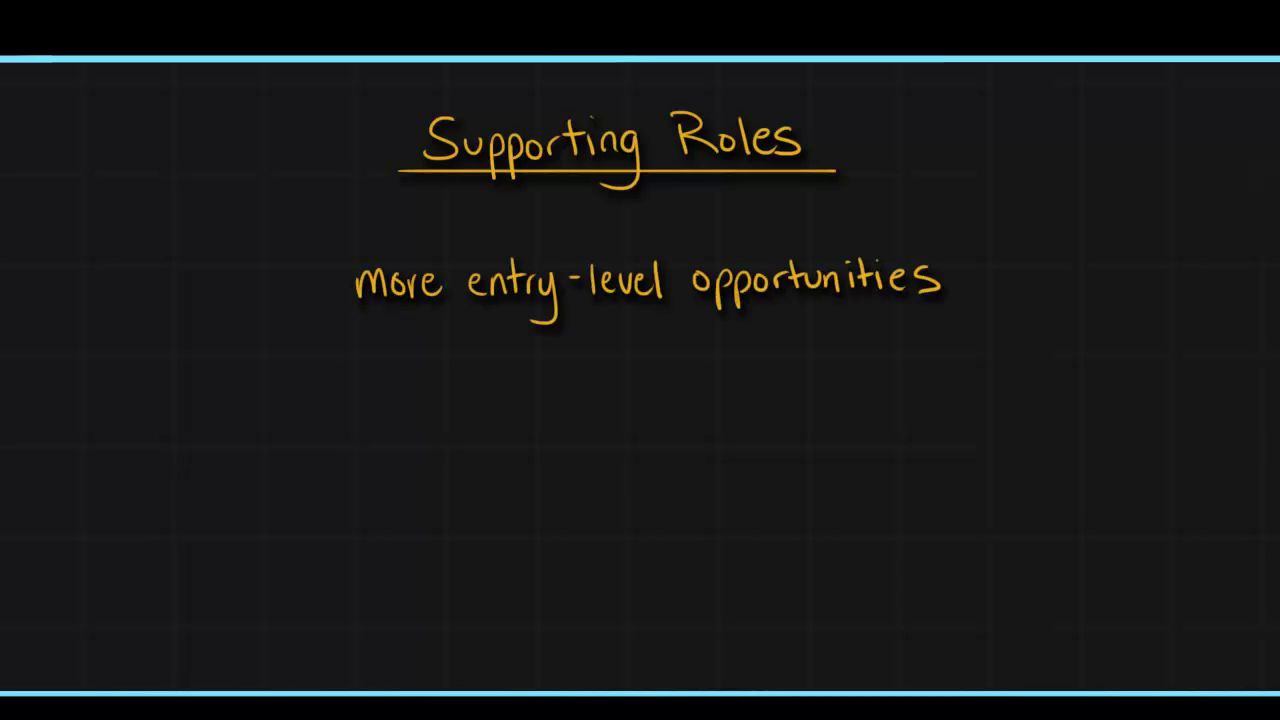 Supporting Roles
more entry-level opportunities